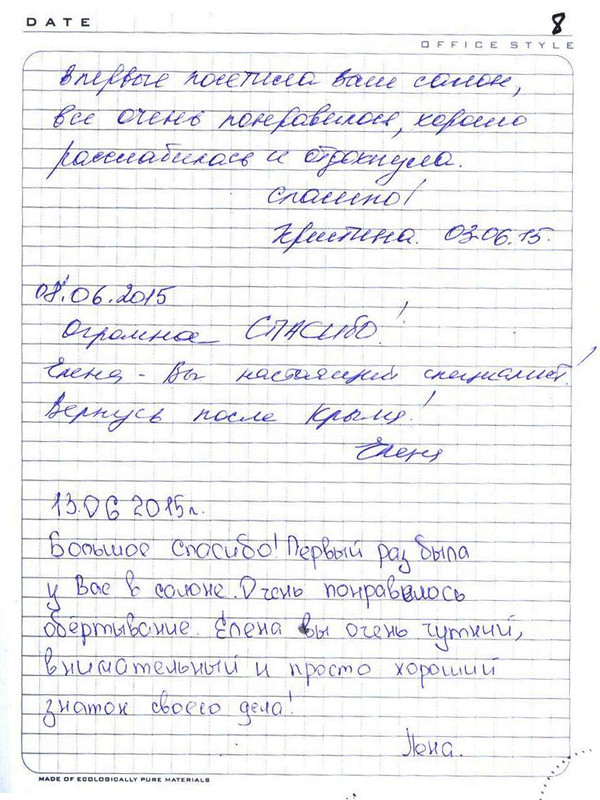 DATE
8
OFFICE STYLE
Впервые посетила ваш салон,
все очень понравилось, хорошо
расслабилась и отдохнула.
спасибо!
Кристина. 03.06.15.
08.06.2015
Огромное СПАСИБО!
Елена - Вы настоящий специалист!
Вернусь после Крыма!
Елена
13.06 2015г.
Большое спасибо! Первый раз была
у Вас в салоне. Очень понравилось
обёртывание. Елена вы очень чуткий,
внимательный и просто хороший
знаток своего дела!
Лена.
MADE OF ECOLOGICALLY PURE MATERIALS